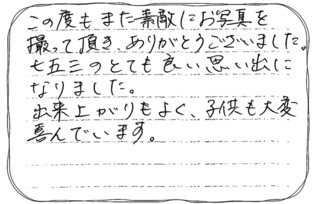 この度もまた素敵にお写真を
撮って頂き、ありがとうございました。
七五三のとても良い思い出に
なりました。
出来上がりもよく、子供も大変
喜んでいます。